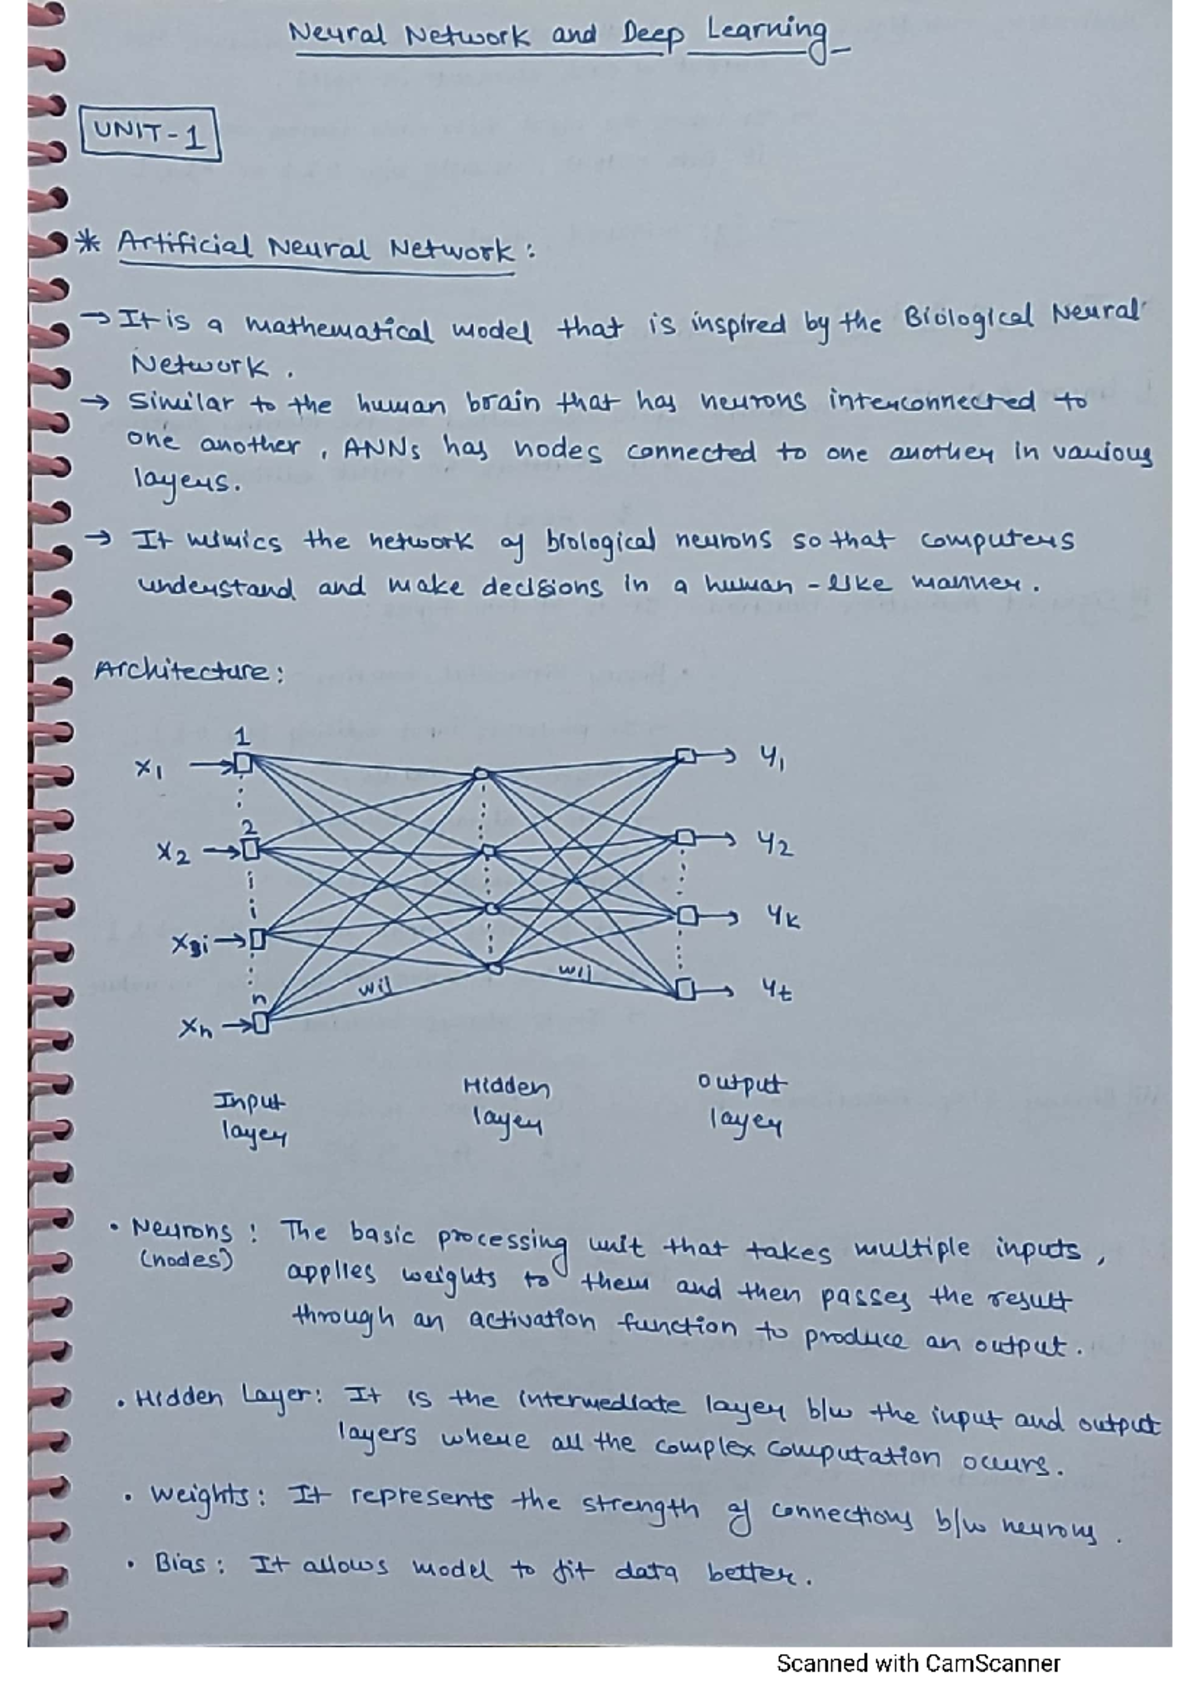 Neural Network and Deep Learning
UNIT-1
* Artificial Neural Network :
→ It is a mathematical model that is inspired by the Biological Neural
Network.
→ Similar to the human brain that has neurons interconnected to
one another, ANNs has nodes connected to one another in various
layers.
→ It mimics the network of biological neurons so that computers
understand and make decisions in a human-like manner.
Architecture:
1
x1
y1
2
x2
y2
x3i
yk
n
wij
wij
xn
yt
Input
layer
Hidden
layer
Output
layer
• Neurons : The basic processing unit that takes multiple inputs,
(nodes) applies weights to them and then passes the result
through an activation function to produce an output.
• Hidden Layer: It is the intermediate layer b/w the input and output
layers where all the complex computation occurs.
• Weights: It represents the strength of connections b/w neurons.
• Bias: It allows model to fit data better.
Scanned with CamScanner